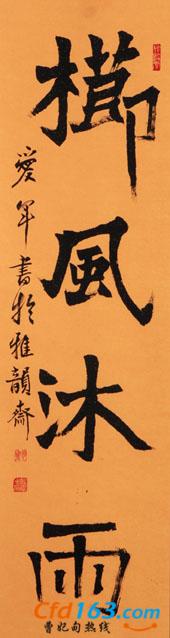 櫛風沐雨
愛軍書於雅韻齋
Cfd163.com
曹妃甸热线